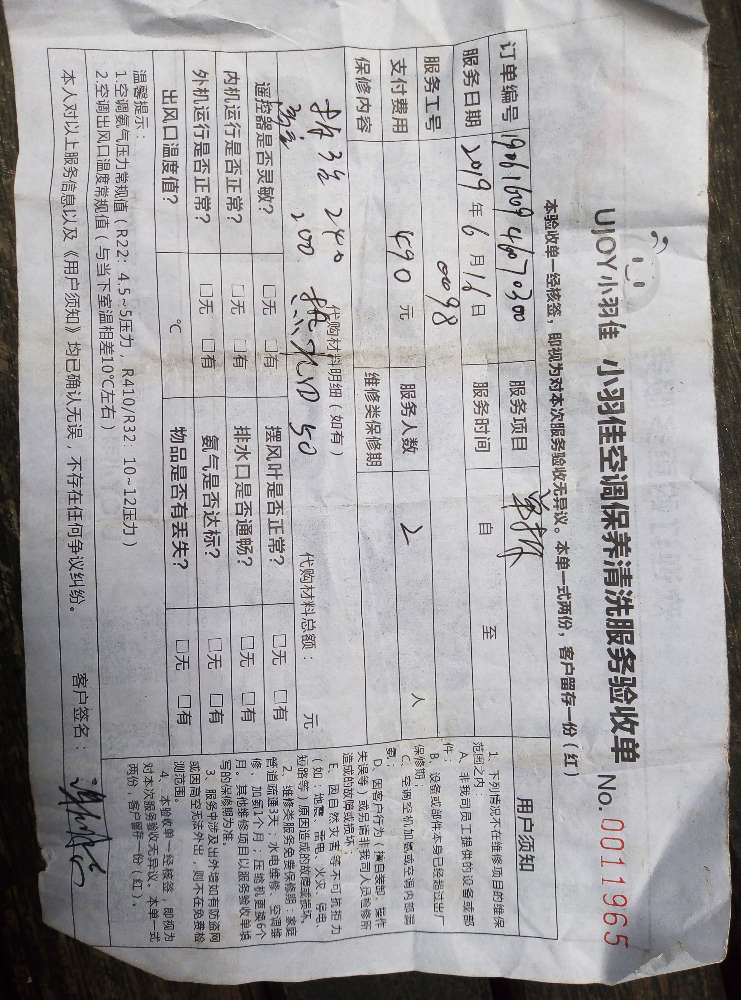 UJOY小羽佳 小羽佳空调保养清洗服务验收单 No. 0011965
本验收单一经核签，即视为对本次服务验收无异议。本单一式两份，客户留存一份（红）
订单编号 1906160946070300 服务项目
服务日期 2019 年 6 月 16 日 服务时间 自 至
服务工号 0098
支付费用 490 元 服务人数 2 人
保修内容 维修类保修期
代购材料明细（如有） 代购材料总额： 元
拆3台 240
200 50
遥控器是否灵敏？ □无 □有 摆风叶是否正常？ □无 □有
内机运行是否正常？ □无 □有 排水口是否通畅？ □无 □有
外机运行是否正常？ □无 □有 氨气是否达标？ □无 □有
出风口温度值？ ℃ 物品是否有丢失？ □无 □有
温馨提示：
1.空调氨气压力常规值（R22：4.5~5压力，R410/R32：10~12压力）
2.空调出风口温度常规值（与当下室温相差10℃左右）
本人对以上服务信息以及《用户须知》均已确认无误，不存在任何争议纠纷。 客户签名：
用户须知
1、下列情况不在维修项目的维保
范围之内：
A、非我司员工提供的设备或部
件；
B、设备或部件本身已经超过出厂
保修期；
C、空调整机加氨或空调内部漏
氨；
D、因客户行为（擅自装卸、操作
失误等）或另请非我司人员检修所
造成的故障或损坏；
E、因自然灾害等不可抗拒力
（如：地震、雷电、火灾、停电、
短路等）原因造成的故障或损坏。
2、维修类服务免费保修期：家庭
管道疏通3天；水电维修、空调维
修、加氨1个月；压缩机更换6个
月。其他维修项目以服务验收单填
写的保修期为准。
3、服务中涉及出外墙如有防盗网
或因高空无法外出，则不在免费检
测范围。
4、本验收单一经核签，即视为
对本次服务验收无异议。本单一式
两份，客户留存一份（红）。